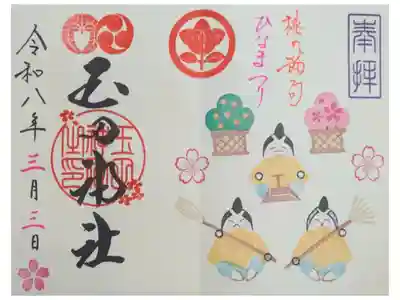 奉拝
桃の節句
ひなまつり
玉田神社
令和八年三月三日